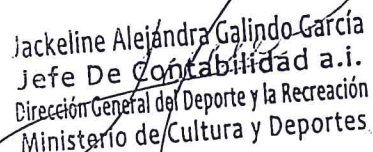 Jackeline Alejandra Galindo García
Jefe De Contabilidad a.i.
Dirección General del Deporte y la Recreación
Ministerio de Cultura y Deportes